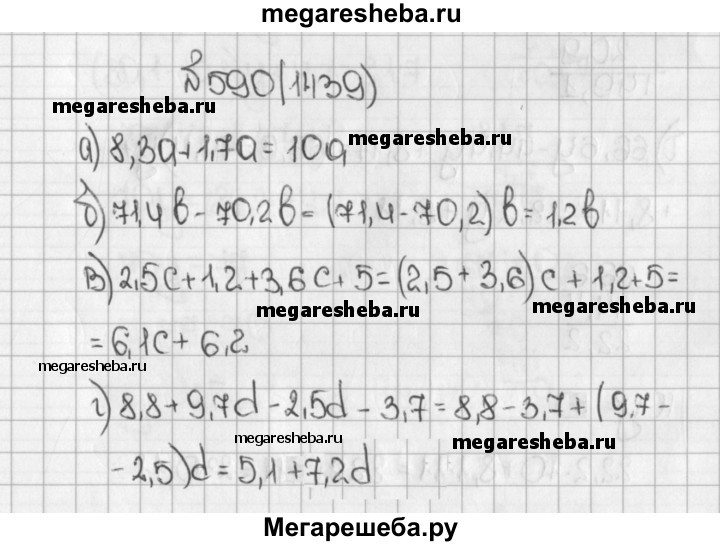 megaresheba.ru
№590(1439)
megaresheba.ru
megaresheba.ru
а) 8,3a+1,7a=10a
б) 71,4b-70,2b=(71,4-70,2)b=1,2b
в) 2,5c+1,2+3,6c+5=(2,5+3,6)c+1,2+5=
megaresheba.ru
megaresheba.ru
=6,1c+6,2
megaresheba.ru
г) 8,8+9,7d-2,5d-3,7=8,8-3,7+(9,7-
megaresheba.ru
megaresheba.ru
-2,5)d=5,1+7,2d
Мегарешеба.ру